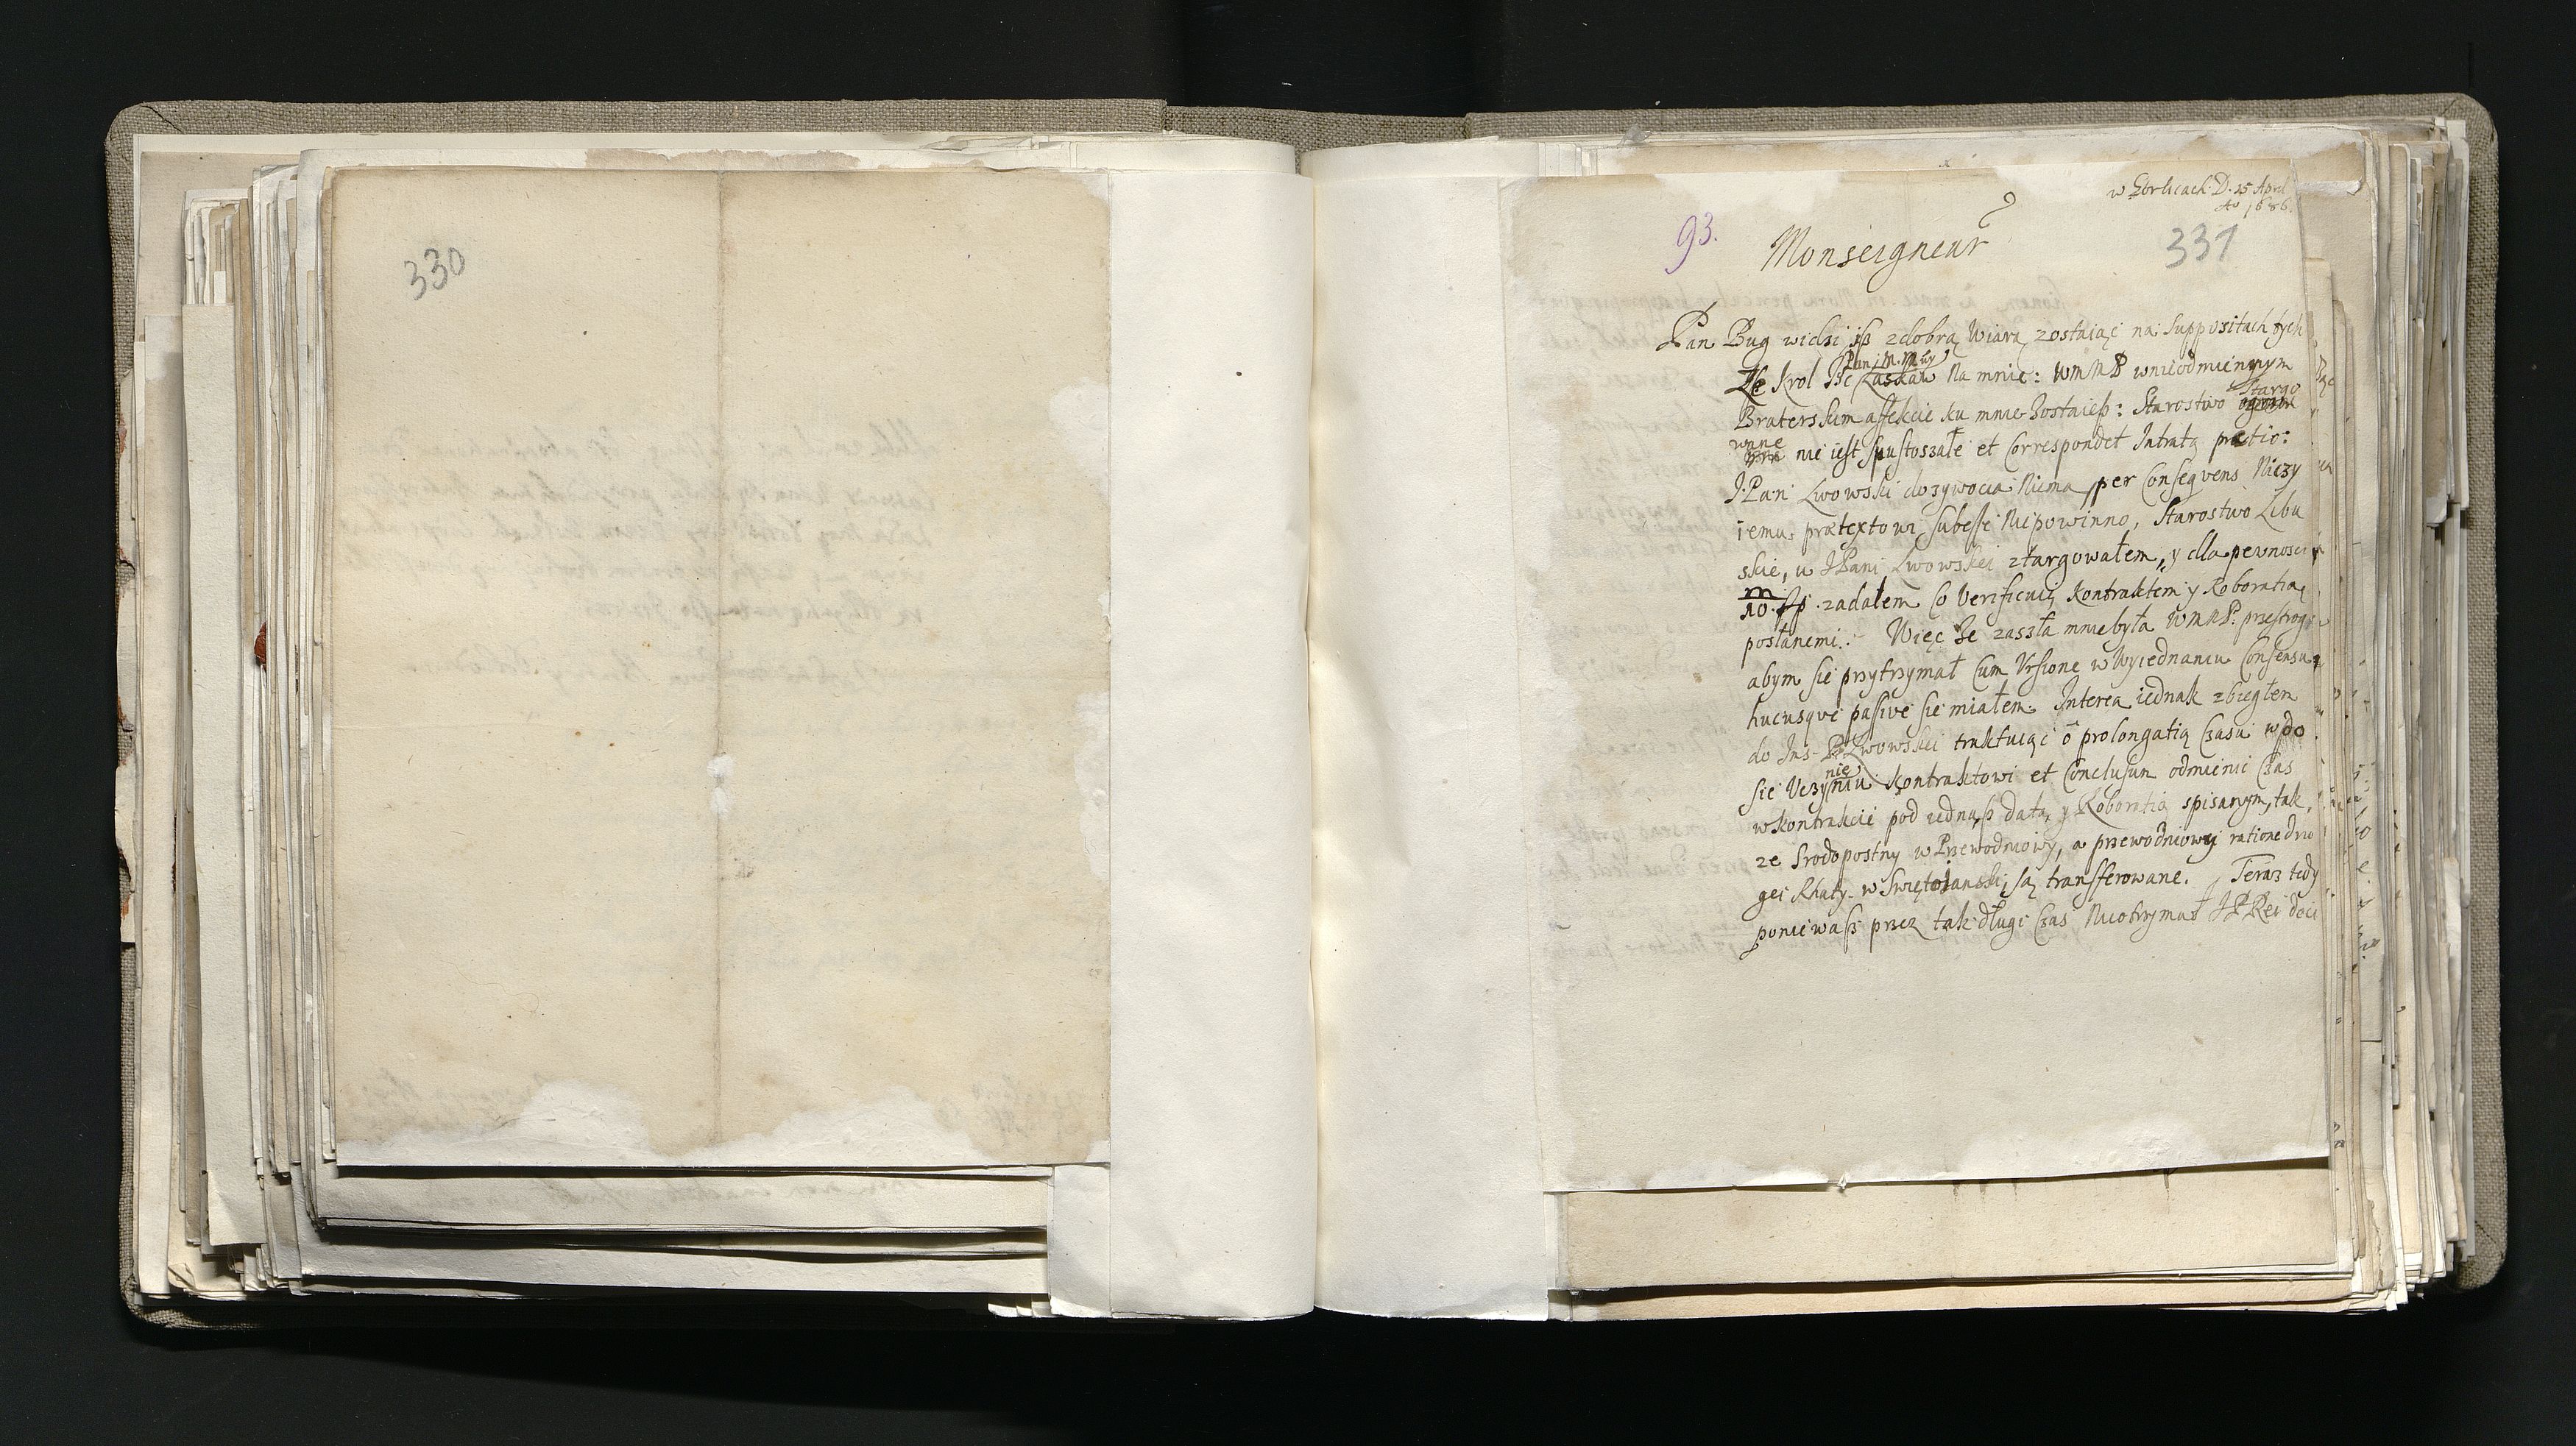 330
w Gorlicach D. 25 April
Ao 1686.
93.
331
Monseigneur
Pan Bug widzi iß zdobrą Wiarą zostaiąć na Suppositach tych
Że Krol Jsć Pan M. Mćy Łaskaw na mnie: WMMP wnieodmiennym
Braterskim affekcie ku mnie Zostaieß: Starostwo Stargo
wnne nie iest spustoszałe et Correspondet Intratą
J. Pani Lwowski dozywocia Niema, per Conseqvens Niczy
iemu prætextowi subesse Nie powinno, Starostwo Libu
skie, u JPani Lwowskiei ztargowałem, y dla pewnosci
m
10. zadałem Co Verificuię Kontraktem y Roboratią
posłanemi: Więc Że zaszła mnie była WMMP: przestroga
abym sie przytrzymał Cum Vrsione w Wyiednaniu Consensu
hucusqve passive sie miałem. Interea iednak zbiegłem
do Lwowskiei traktuiąć o prolongatią Czasu w do
sie Uczynieniu Kontraktowi et Conclusun odmienić Czas
w Kontrakcie pod iednąß datą, y Roboratią spisanym, tak,
ze Srodopostny w Przewodniowy, a przewodniowy ratione dru
gei Rhaty w Swiętoianski są transferowane. Teraz tedy
poniewaß przez tak długi Czas Nieotrzymał JP Rei doći